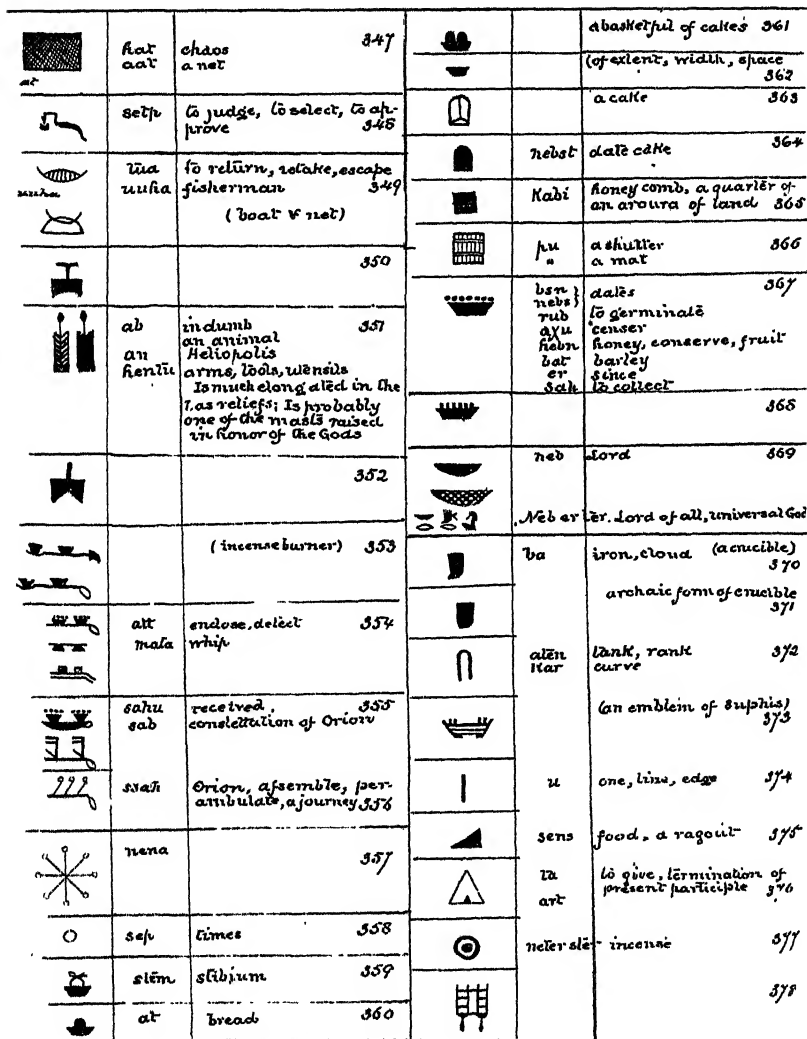 hat chaos 347
aat a net
at
setp to judge, to select, to ap-
prove 348
tua to return, retake, escape
uuha fisherman 349
(boat & net)
350
ab in dumb 351
an an animal
Heliopolis
hentu arms, tools, utensils
Is much elongated in the
bas reliefs; Is probably
one of the masts raised
in honor of the Gods
352
(incense burner) 353
att enclose, detect 354
mata whip
sahu received, 355
sab constellation of Orion
ssah Orion, assemble, per-
ambulate, a journey 356
nena 357
sep times 358
stem stibium 359
at bread 360
a basketful of cakes 361
(of extent, width, space
362
a cake 363
nebst date cake 364
Kabi honey comb, a quarter of
an aroura of land 365
pu a shutter 366
" a mat
bsn } dates 367
nebs }
rub to germinate
axu censer
hebn honey, conserve, fruit
bat barley
er since
sah to collect
368
neb Lord 369
Neb er ter. Lord of all, universal God
ba iron, cloud (a crucible)
370
archaic form of crucible
371
aten tank, rank 372
kar curve
(an emblem of Suphis)
373
u one, line, edge 374
sens food, a ragout 375
ta to give, termination of
art present participle 376
neter ster incense 377
378